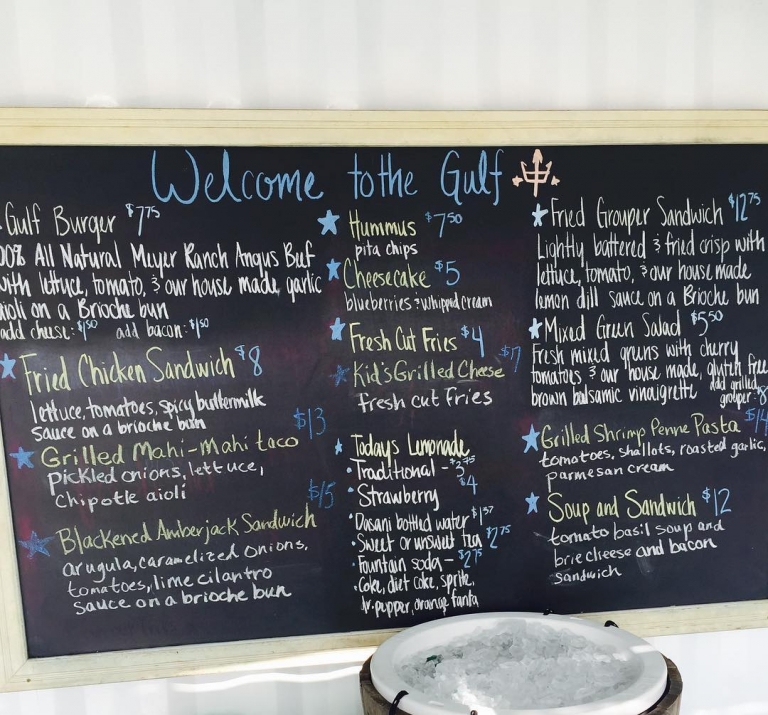 Welcome to the Gulf
Gulf Burger $7.75
00% All Natural Meyer Ranch Angus Beef
with lettuce, tomato, & our house made garlic
aioli on a Brioche bun
add cheese: $1.50 add bacon: $1.50
Fried Chicken Sandwich $8
lettuce, tomatoes, spicy buttermilk
sauce on a brioche bun
$13
Grilled Mahi-Mahi taco
pickled onions, lettuce,
Chipotle aioli
$15
Blackened Amberjack Sandwich
arugula, caramelized onions,
tomatoes, lime cilantro
sauce on a brioche bun
Hummus $7.50
pita chips
Cheesecake $5
blueberries & whipped cream
Fresh Cut Fries $4
Kid's Grilled Cheese $7
fresh cut fries
Todays Lemonade
Traditional - $3.75
Strawberry $4
Dasani bottled water $1.57
Sweet or unsweet tea $2.75
Fountain soda - $2.75
Coke, diet coke, sprite,
dr. pepper, orange fanta
Fried Grouper Sandwich $12.75
Lightly battered & fried crisp with
lettuce, tomato, & our house made
lemon dill sauce on a Brioche bun
Mixed Green Salad $5.50
Fresh mixed greens with cherry
tomatoes & our house made, gluten free
brown balsamic vinaigrette add grilled
grouper $8
$14
Grilled Shrimp Penne Pasta
tomatoes, shallots, roasted garlic,
parmesan cream
Soup and Sandwich $12
tomato basil soup and
brie cheese and bacon
sandwich